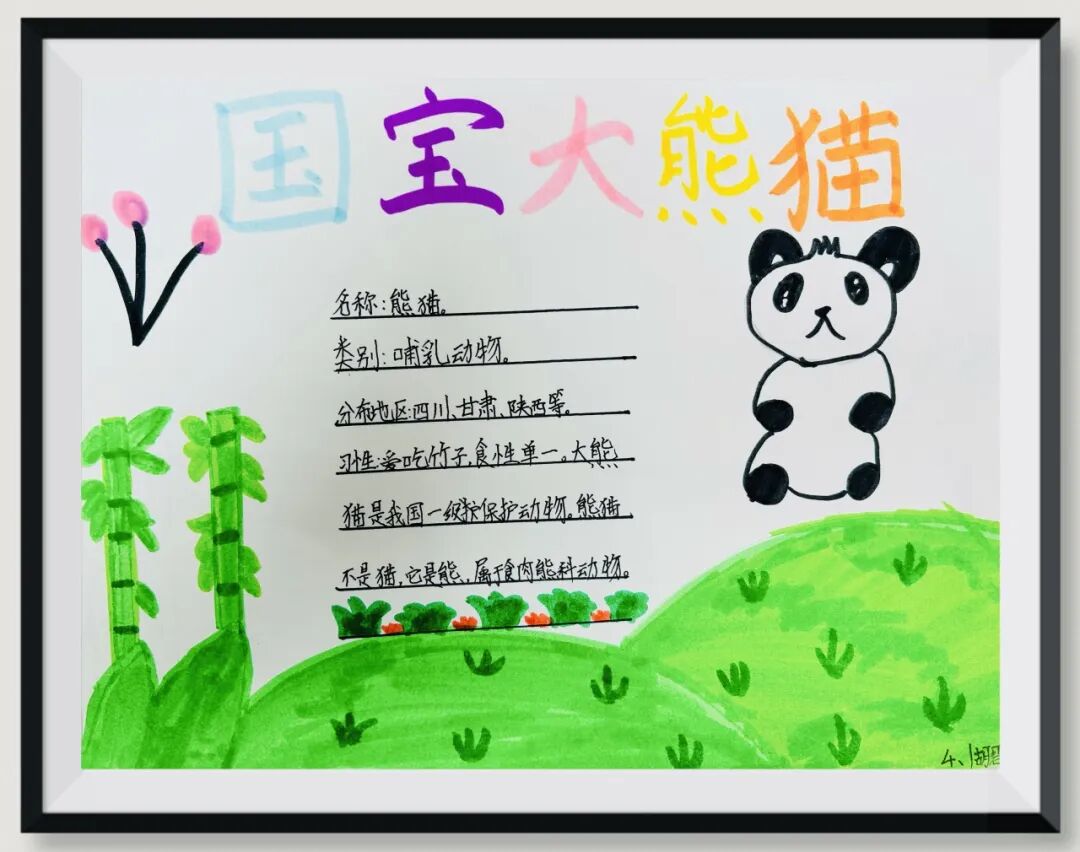 国宝大熊猫
名称:熊猫。
类别:哺乳动物。
分布地区:四川、甘肃、陕西等。
习性:爱吃竹子,食性单一。大熊
猫是我国一级保护动物。熊猫
不是猫,它是能,属于食肉能科动物。
4、1胡